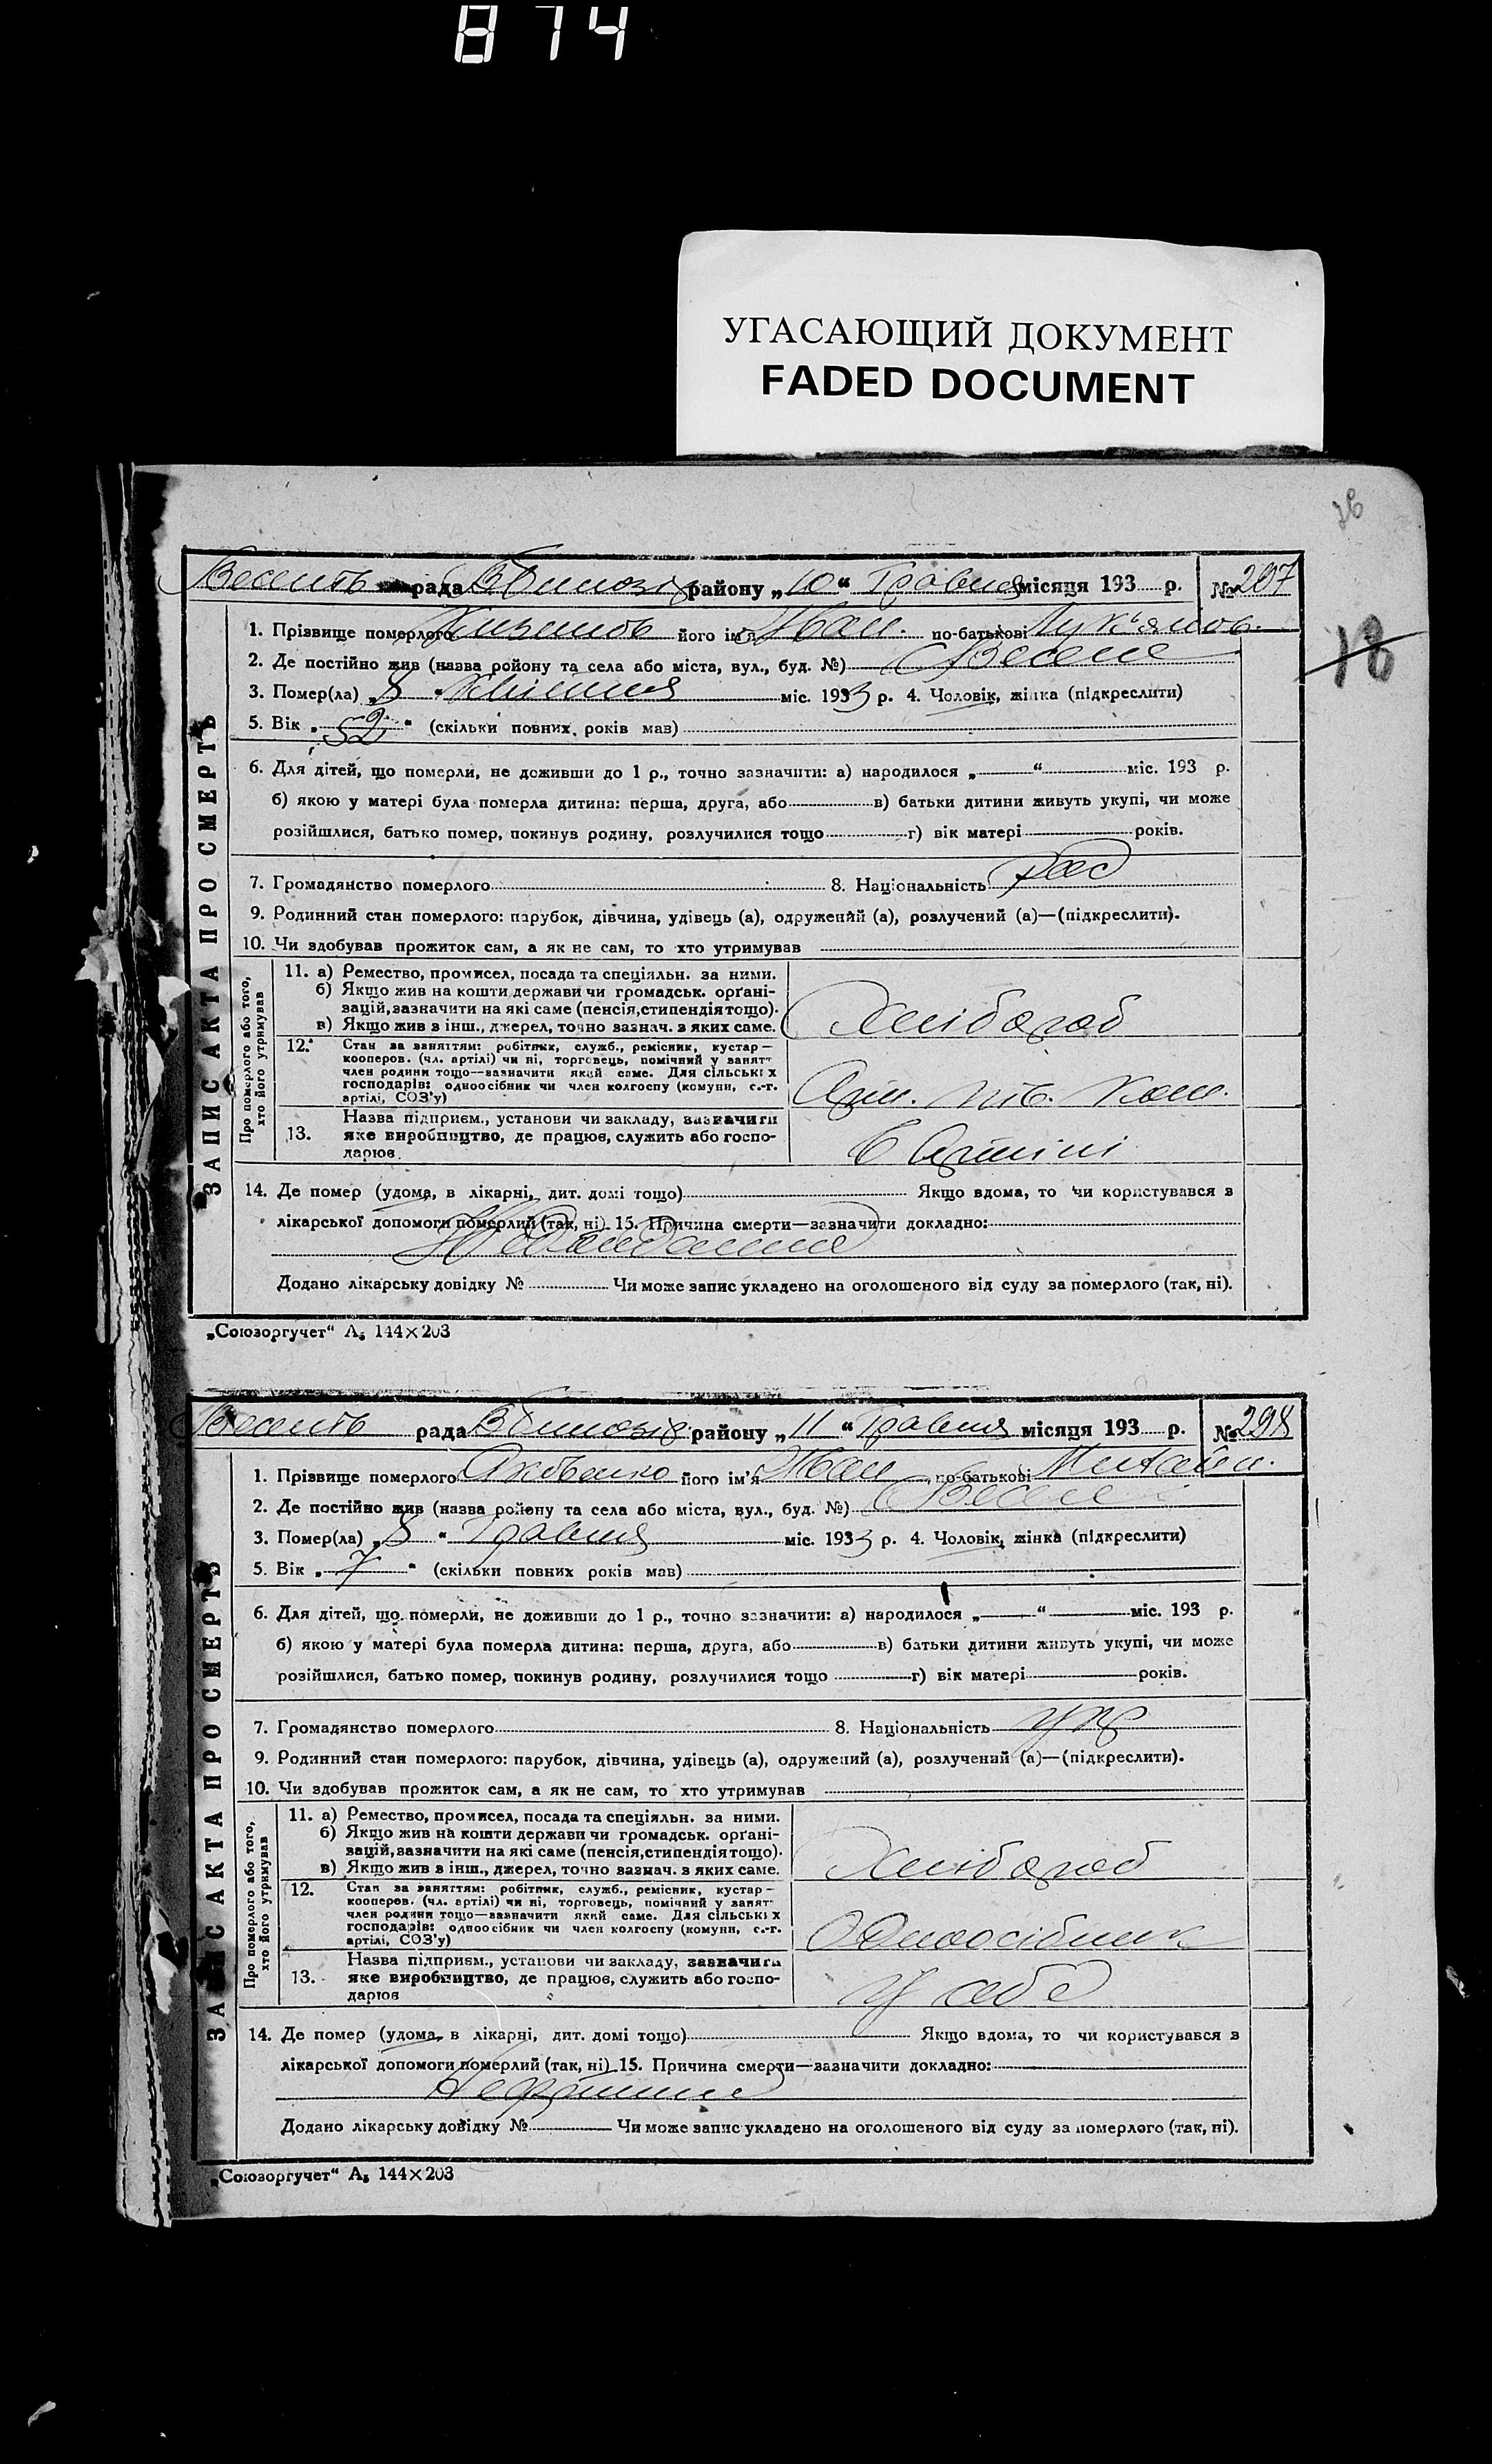 874
УГАСАЮЩИЙ ДОКУМЕНТ
FADED DOCUMENT
18
рада району „10“ Травня місяця 193 р. № 297
1. Прізвище померлого його ім'я Іван. по-батькові Лук'янов.
2. Де постійно жив (назва ройону та села або міста, вул., буд. №) Веселе
3. Помер(ла) „8“ Квітня міс. 1933 р. 4. Чоловік, жінка (підкреслити)
5. Вік „52“ (скільки повних років мав)
6. Для дітей, що померли, не доживши до 1 р., точно зазначити: а) народилося „ “ міс. 193 р.
б) якою у матері була померла дитина: перша, друга, або в) батьки дитини живуть укупі, чи може
розійшлися, батько помер, покинув родину, розлучилися тощо г) вік матері років.
7. Громадянство померлого 8. Національність рос
9. Родинний стан померлого: парубок, дівчина, удівець (а), одружений (а), розлучений (а)—(підкреслити).
10. Чи здобував прожиток сам, а як не сам, то хто утримував
ЗАПИС АКТА ПРО СМЕРТЬ
Про померлого або того, хто його утримував
11. а) Ремество, промисел, посада та спеціяльн. за ними.
б) Якщо жив на кошти держави чи громадськ. орґані-
зацій, зазначити на які саме (пенсія, стипендія тощо).
в) Якщо жив з інш., джерел, точно зазнач. з яких саме. Хлібороб
12. Стан за заняттям: робітник, служб., ремісник, кустар—
кооперов. (чл. артілі) чи ні, торговець, помічний у занят
член родини тощо—зазначити який саме. Для сільських
господарів: одноосібник чи член колгоспу (комуни, с.-г.
артілі, СОЗ'у)
Назва підприєм., установи чи закладу, зазначити
13. яке виробництво, де працює, служить або госпо-
дарює. В Артілі
14. Де помер (удома, в лікарні, дит. домі тощо) Якщо вдома, то чи користувався з
лікарської допомоги померлий (так, ні). 15. Причина смерти—зазначити докладно:
Додано лікарську довідку № Чи може запис укладено на оголошеного від суду за померлого (так, ні).
„Союзоргучет“ А₅ 144×203
рада району „11“ Травня місяця 193 р. № 298
1. Прізвище померлого Яковенко його ім'я Іван по-батькові Михайл.
2. Де постійно жив (назва ройону та села або міста, вул., буд. №) Веселе
3. Помер(ла) „8“ Травня міс. 1933 р. 4. Чоловік, жінка (підкреслити)
5. Вік „7“ (скільки повних років мав)
6. Для дітей, що померли, не доживши до 1 р., точно зазначити: а) народилося „ “ міс. 193 р.
б) якою у матері була померла дитина: перша, друга, або в) батьки дитини живуть укупі, чи може
розійшлися, батько помер, покинув родину, розлучилися тощо г) вік матері років.
7. Громадянство померлого 8. Національність укр
9. Родинний стан померлого: парубок, дівчина, удівець (а), одружений (а), розлучений (а)—(підкреслити).
10. Чи здобував прожиток сам, а як не сам, то хто утримував
ЗАПИС АКТА ПРО СМЕРТЬ
Про померлого або того, хто його утримував
11. а) Ремество, промисел, посада та спеціяльн. за ними.
б) Якщо жив на кошти держави чи громадськ. орґані-
зацій, зазначити на які саме (пенсія, стипендія тощо).
в) Якщо жив з інш., джерел, точно зазнач. з яких саме. Хлібороб
12. Стан за заняттям: робітник, служб., ремісник, кустар—
кооперов. (чл. артілі) чи ні, торговець, помічний у занят
член родини тощо—зазначити який саме. Для сільських
господарів: одноосібник чи член колгоспу (комуни, с.-г.
артілі, СОЗ'у) Одноосібник
Назва підприєм., установи чи закладу, зазначити
13. яке виробництво, де працює, служить або госпо-
дарює У себе
14. Де помер (удома, в лікарні, дит. домі тощо) Якщо вдома, то чи користувався з
лікарської допомоги померлий (так, ні). 15. Причина смерти—зазначити докладно:
Додано лікарську довідку № Чи може запис укладено на оголошеного від суду за померлого (так, ні).
„Союзоргучет“ А₅ 144×203